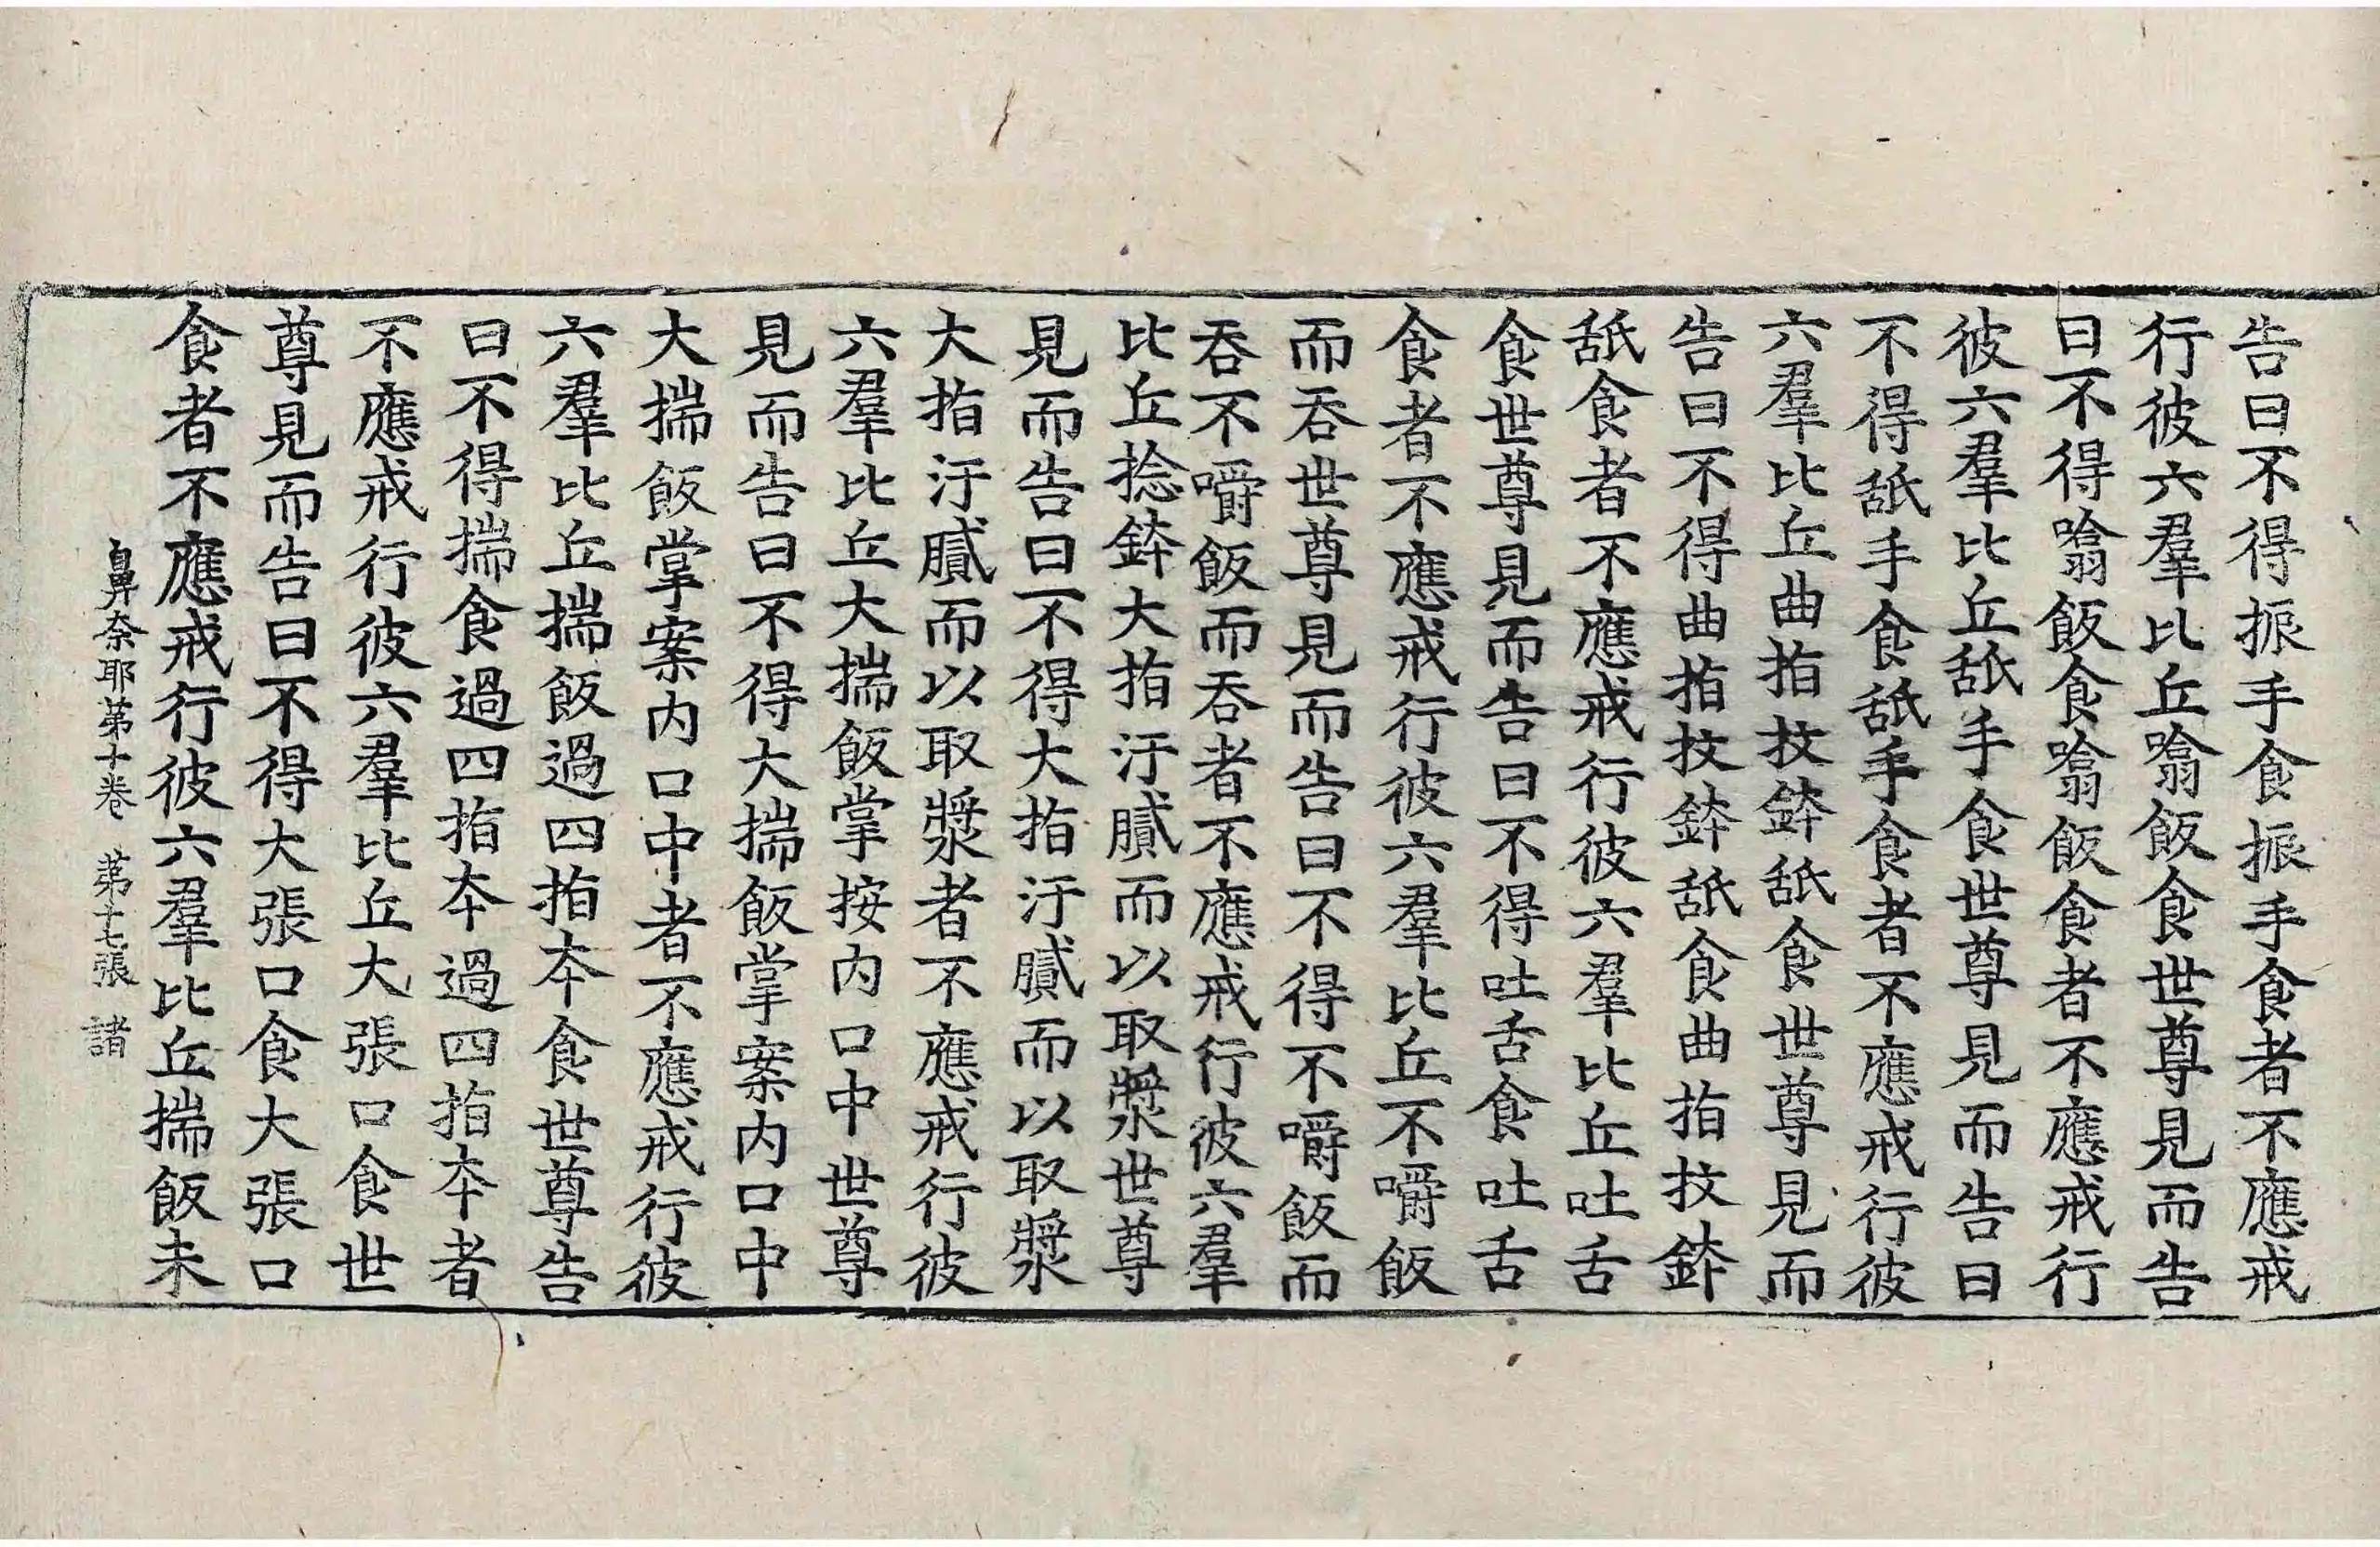 告曰不得振手食振手食者不應戒
行彼六羣比丘噏飯食世尊見而告
曰不得噏飯食噏飯食者不應戒行
彼六羣比丘舐手食世尊見而告曰
不得舐手食舐手食者不應戒行彼
六羣比丘曲指抆鉢舐食世尊見而
告曰不得曲指抆鉢舐食曲指抆鉢
舐食者不應戒行彼六羣比丘吐舌
食世尊見而告曰不得吐舌食吐舌
食者不應戒行彼六羣比丘不嚼飯
而吞世尊見而告曰不得不嚼飯而
吞不嚼飯而吞者不應戒行彼六羣
比丘捻鉢大指汙膩而以取漿世尊
見而告曰不得大指汙膩而以取漿
大指汙膩而以取漿者不應戒行彼
六羣比丘大揣飯掌按內口中世尊
見而告曰不得大揣飯掌案內口中
大揣飯掌案內口中者不應戒行彼
六羣比丘揣飯過四指夲食世尊告
曰不得揣食過四指夲過四指夲者
不應戒行彼六羣比丘大張口食世
尊見而告曰不得大張口食大張口
食者不應戒行彼六羣比丘揣飯未
鼻奈耶苐十卷 苐十七張 諸